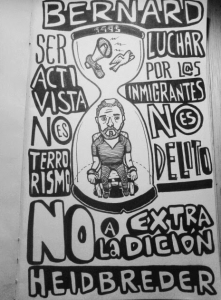 BERNARD
1995
SER
ACTI
VISTA
NO ES
TERRO
RISMO
LUCHAR
POR L@S
INMIGRANTES
NO ES
DELITO
NO A LA EXTRA
DICIÓN
HEIDBREDER